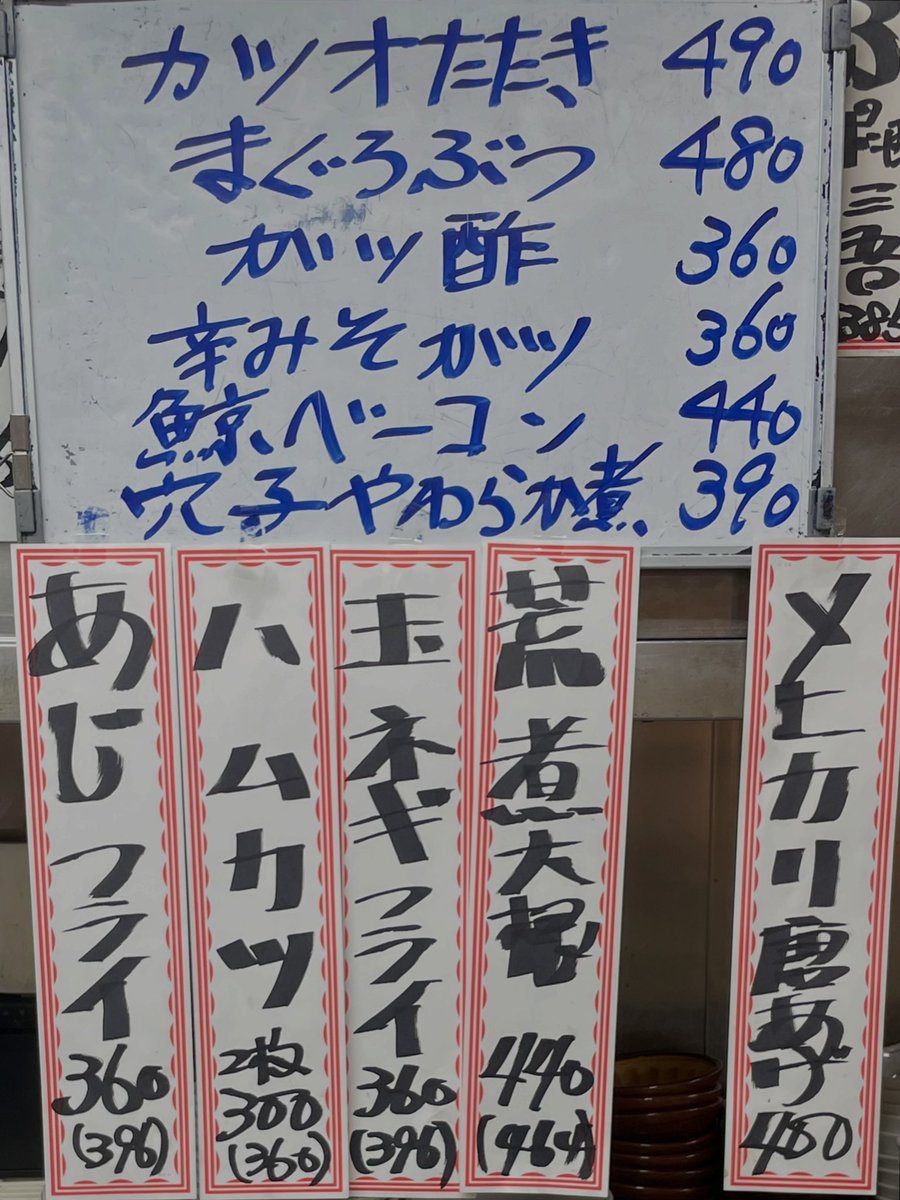 カツオたたき 490
まぐろぶつ 480
ガツ酢 360
辛みそガツ 360
鯨ベーコン 440
穴子やわらか煮 390
メヒカリ唐あげ 400
荒煮大 440
玉ネギフライ 360 (396)
ハムカツ 2枚 300 (360)
あじフライ 360 (396)